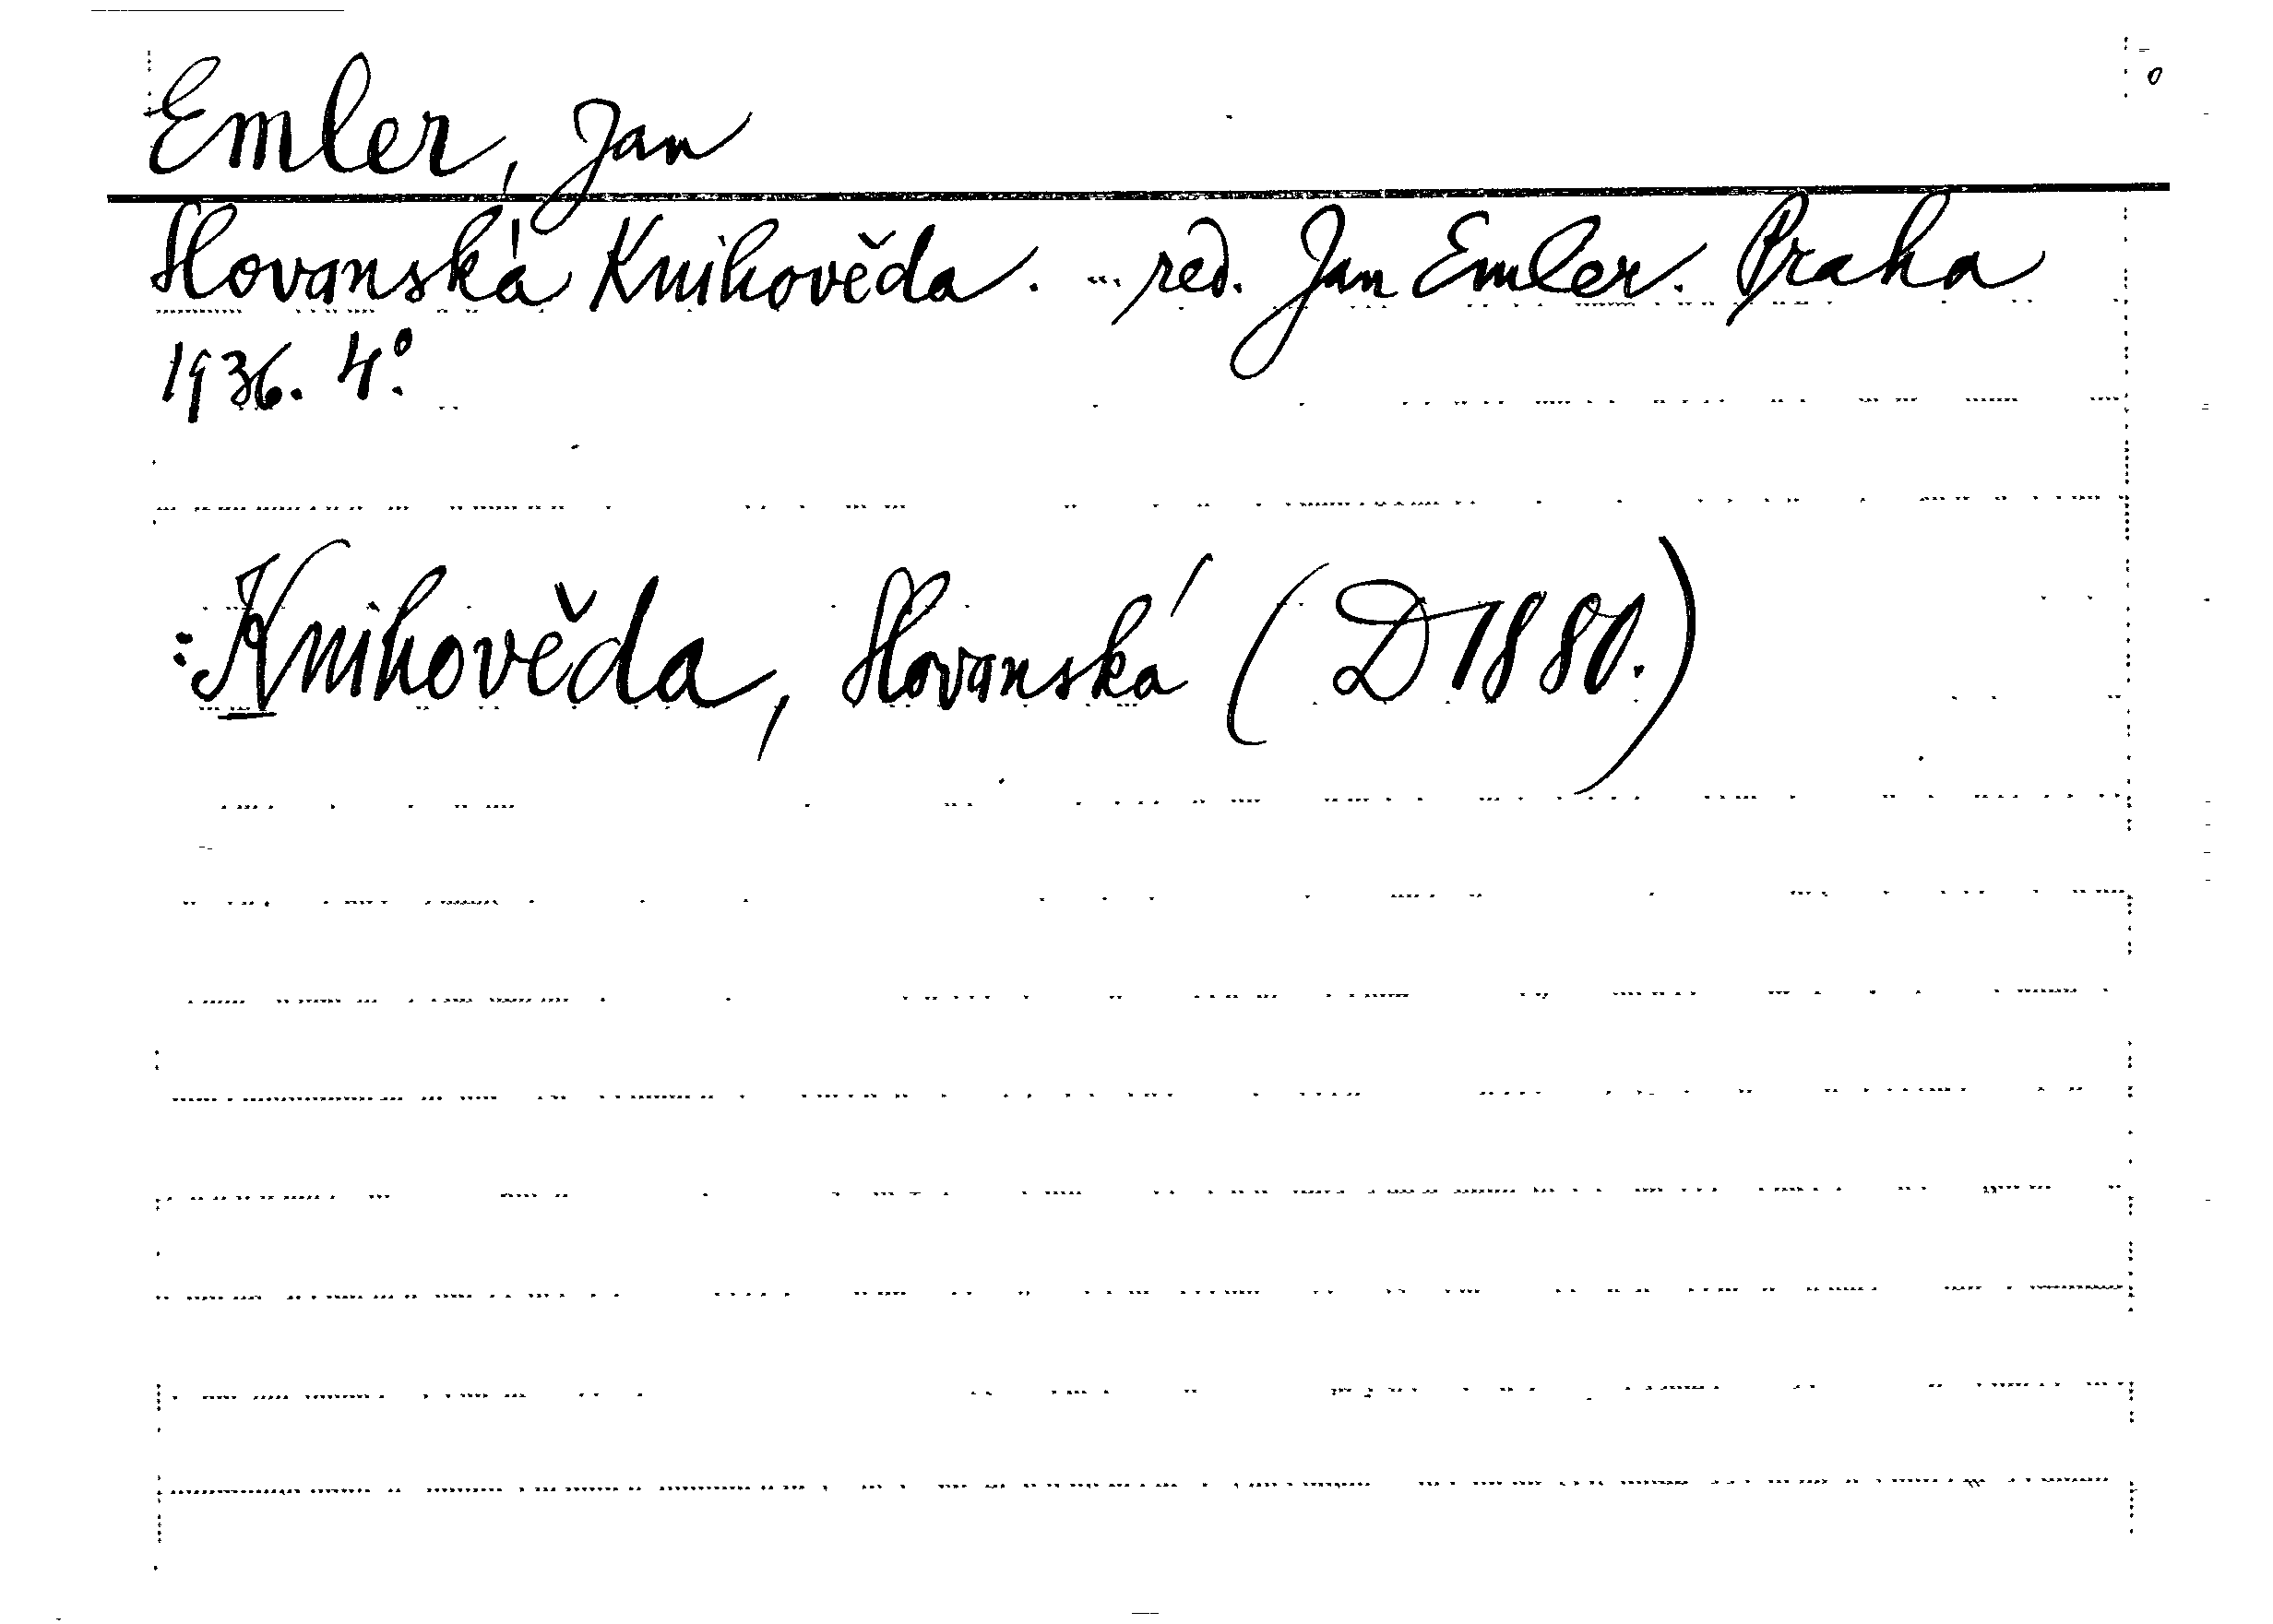 Emler, Jan
Slovanská Knihověda. ... red. Jan Emler. Praha
1936. 4°.
:Knihověda, Slovanská (D 1880.)